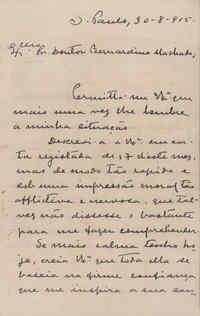 S. Paulo, 30-8-915.
Exmo Sr. Doutor Bernardino Machado,
Permitta-me Vª Exª
mais uma vez lhe lembre
a minha situação.
Descrevi-a a Vª em car-
ta registada de 17 deste mez,
mas de modo tão rapido e
sob uma impressão moral tão
afflictiva e nervosa, que tal-
vez não dissesse o bastante
para me fazer comprehender
Se mais calma tenho ho-
je, creia Vª que toda ella se
baseia na firme confiança
que me inspira a sua